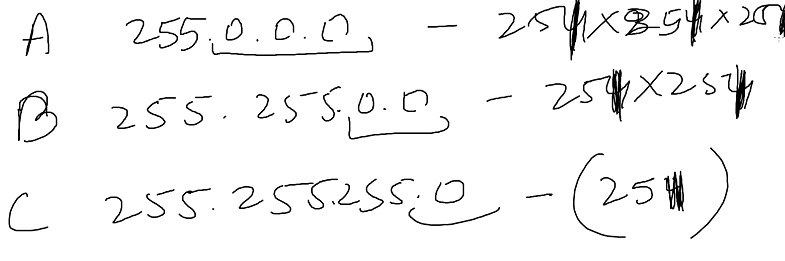 A 255.0.0.0 - 254×254×254
B 255.255.0.0 - 254×254
C 255.255.255.0 - (254)